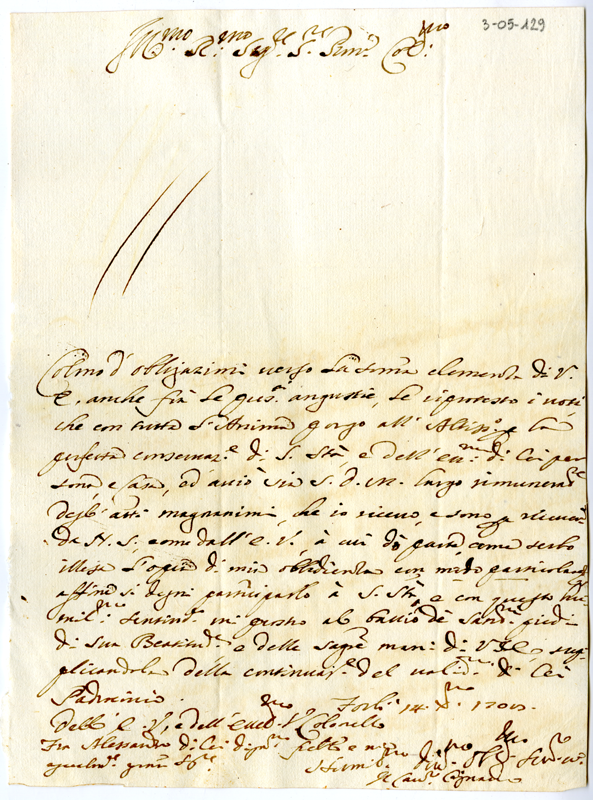 3-05-129
Ill.mo R.mo Sig.re S.r Pron. Col.mo
Colmo d'obbligazioni verso la somma clemenza di V.
E. anche frà le angustie, le riprotesto i voti
che con tutta l'Anima porgo all' Altiss.o p la
perfetta conservaz.e di S. Stà, e dell' di Lei per
sona e Casa, ed acciò sia S. D. M. largo
degl' atti magnanimi, che io ricevo, e sono p ricever
da N. S., come dall' E. V., à cui dò parte, come serbo
illesa l'opera di mia obbedienza con modo particolare
affine si degni parteciparlo à S. Stà, e con questo hu
mil.mo mi prostro al baccio de piedi
di Sua Beatitud.e e delle sagre mani di V. E. sup
plicandola della continuaz.e del valid.mo di Lei
Padrocinio.
Forlì 14 X.bre 1700.
Dell' E. V., e dell' Colonello
Frà Alessandro di Lei
Hum.mo Div.mo Obl.mo Ser.re
Il Cav.re Cignani